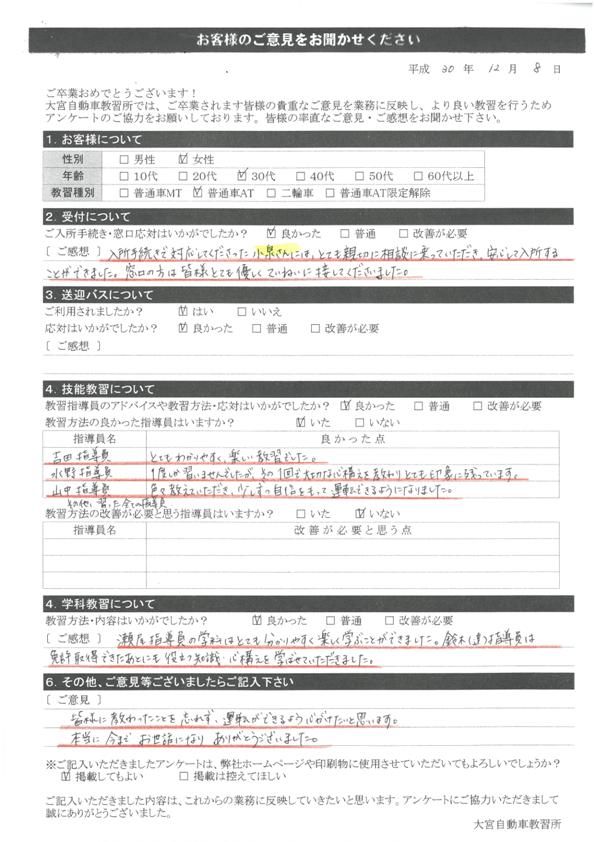 お客様のご意見をお聞かせください
平成 30 年 12 月 8 日
ご卒業おめでとうございます！
大宮自動車教習所では、ご卒業されます皆様の貴重なご意見を業務に反映し、より良い教習を行うため
アンケートのご協力をお願いしております。皆様の率直なご意見・ご感想をお聞かせ下さい。
1. お客様について
性別 □ 男性 ☑ 女性
年齢 □ 10代 □ 20代 ☑ 30代 □ 40代 □ 50代 □ 60代以上
教習種別 □ 普通車MT ☑ 普通車AT □ 二輪車 □ 普通車AT限定解除
2. 受付について
ご入所手続き・窓口応対はいかがでしたか？ ☑ 良かった □ 普通 □ 改善が必要
〔 ご感想 〕 入所手続きで対応してくださった小泉さんには、とても親切に相談に乗っていただき、安心して入所する
ことができました。窓口の方は皆様とても優しくていねいに接してくださいました。
3. 送迎バスについて
ご利用されましたか？ ☑ はい □ いいえ
応対はいかがでしたか？ ☑ 良かった □ 普通 □ 改善が必要
〔 ご感想 〕
4. 技能教習について
教習指導員のアドバイスや教習方法・応対はいかがでしたか？ ☑ 良かった □ 普通 □ 改善が必要
教習方法の良かった指導員はいますか？ ☑ いた □ いない
指導員名 良かった点
吉田指導員 とてもわかりやすく、楽しい教習でした。
水野指導員 1度しか習いませんでしたが、その1回で大切な心構えを教わりとても印象に残っています。
山中指導員 色々教えていただき、少しずつ自信をもって運転できるようになりました。
その他、習った全ての指導員
教習方法の改善が必要と思う指導員はいますか？ □ いた ☑ いない
指導員名 改善が必要と思う点
4. 学科教習について
教習方法・内容はいかがでしたか？ ☑ 良かった □ 普通 □ 改善が必要
〔 ご感想 〕 瀬尾指導員の学科はとても分かりやすく楽しく学ぶことができました。鈴木(達)指導員は
免許取得できたあとにも役立つ知識・心構えを学ばせていただきました。
6. その他、ご意見等ございましたらご記入下さい
〔 ご意見 〕
皆様に教わったことを忘れず、運転ができるよう心がけたいと思います。
本当に今までお世話になりありがとうございました。
※ご記入いただきましたアンケートは、弊社ホームページや印刷物に使用させていただいてもよろしいでしょうか？
☑ 掲載してもよい □ 掲載は控えてほしい
ご記入いただきました内容は、これからの業務に反映していきたいと思います。アンケートにご協力いただきまして
誠にありがとうございました。
大宮自動車教習所